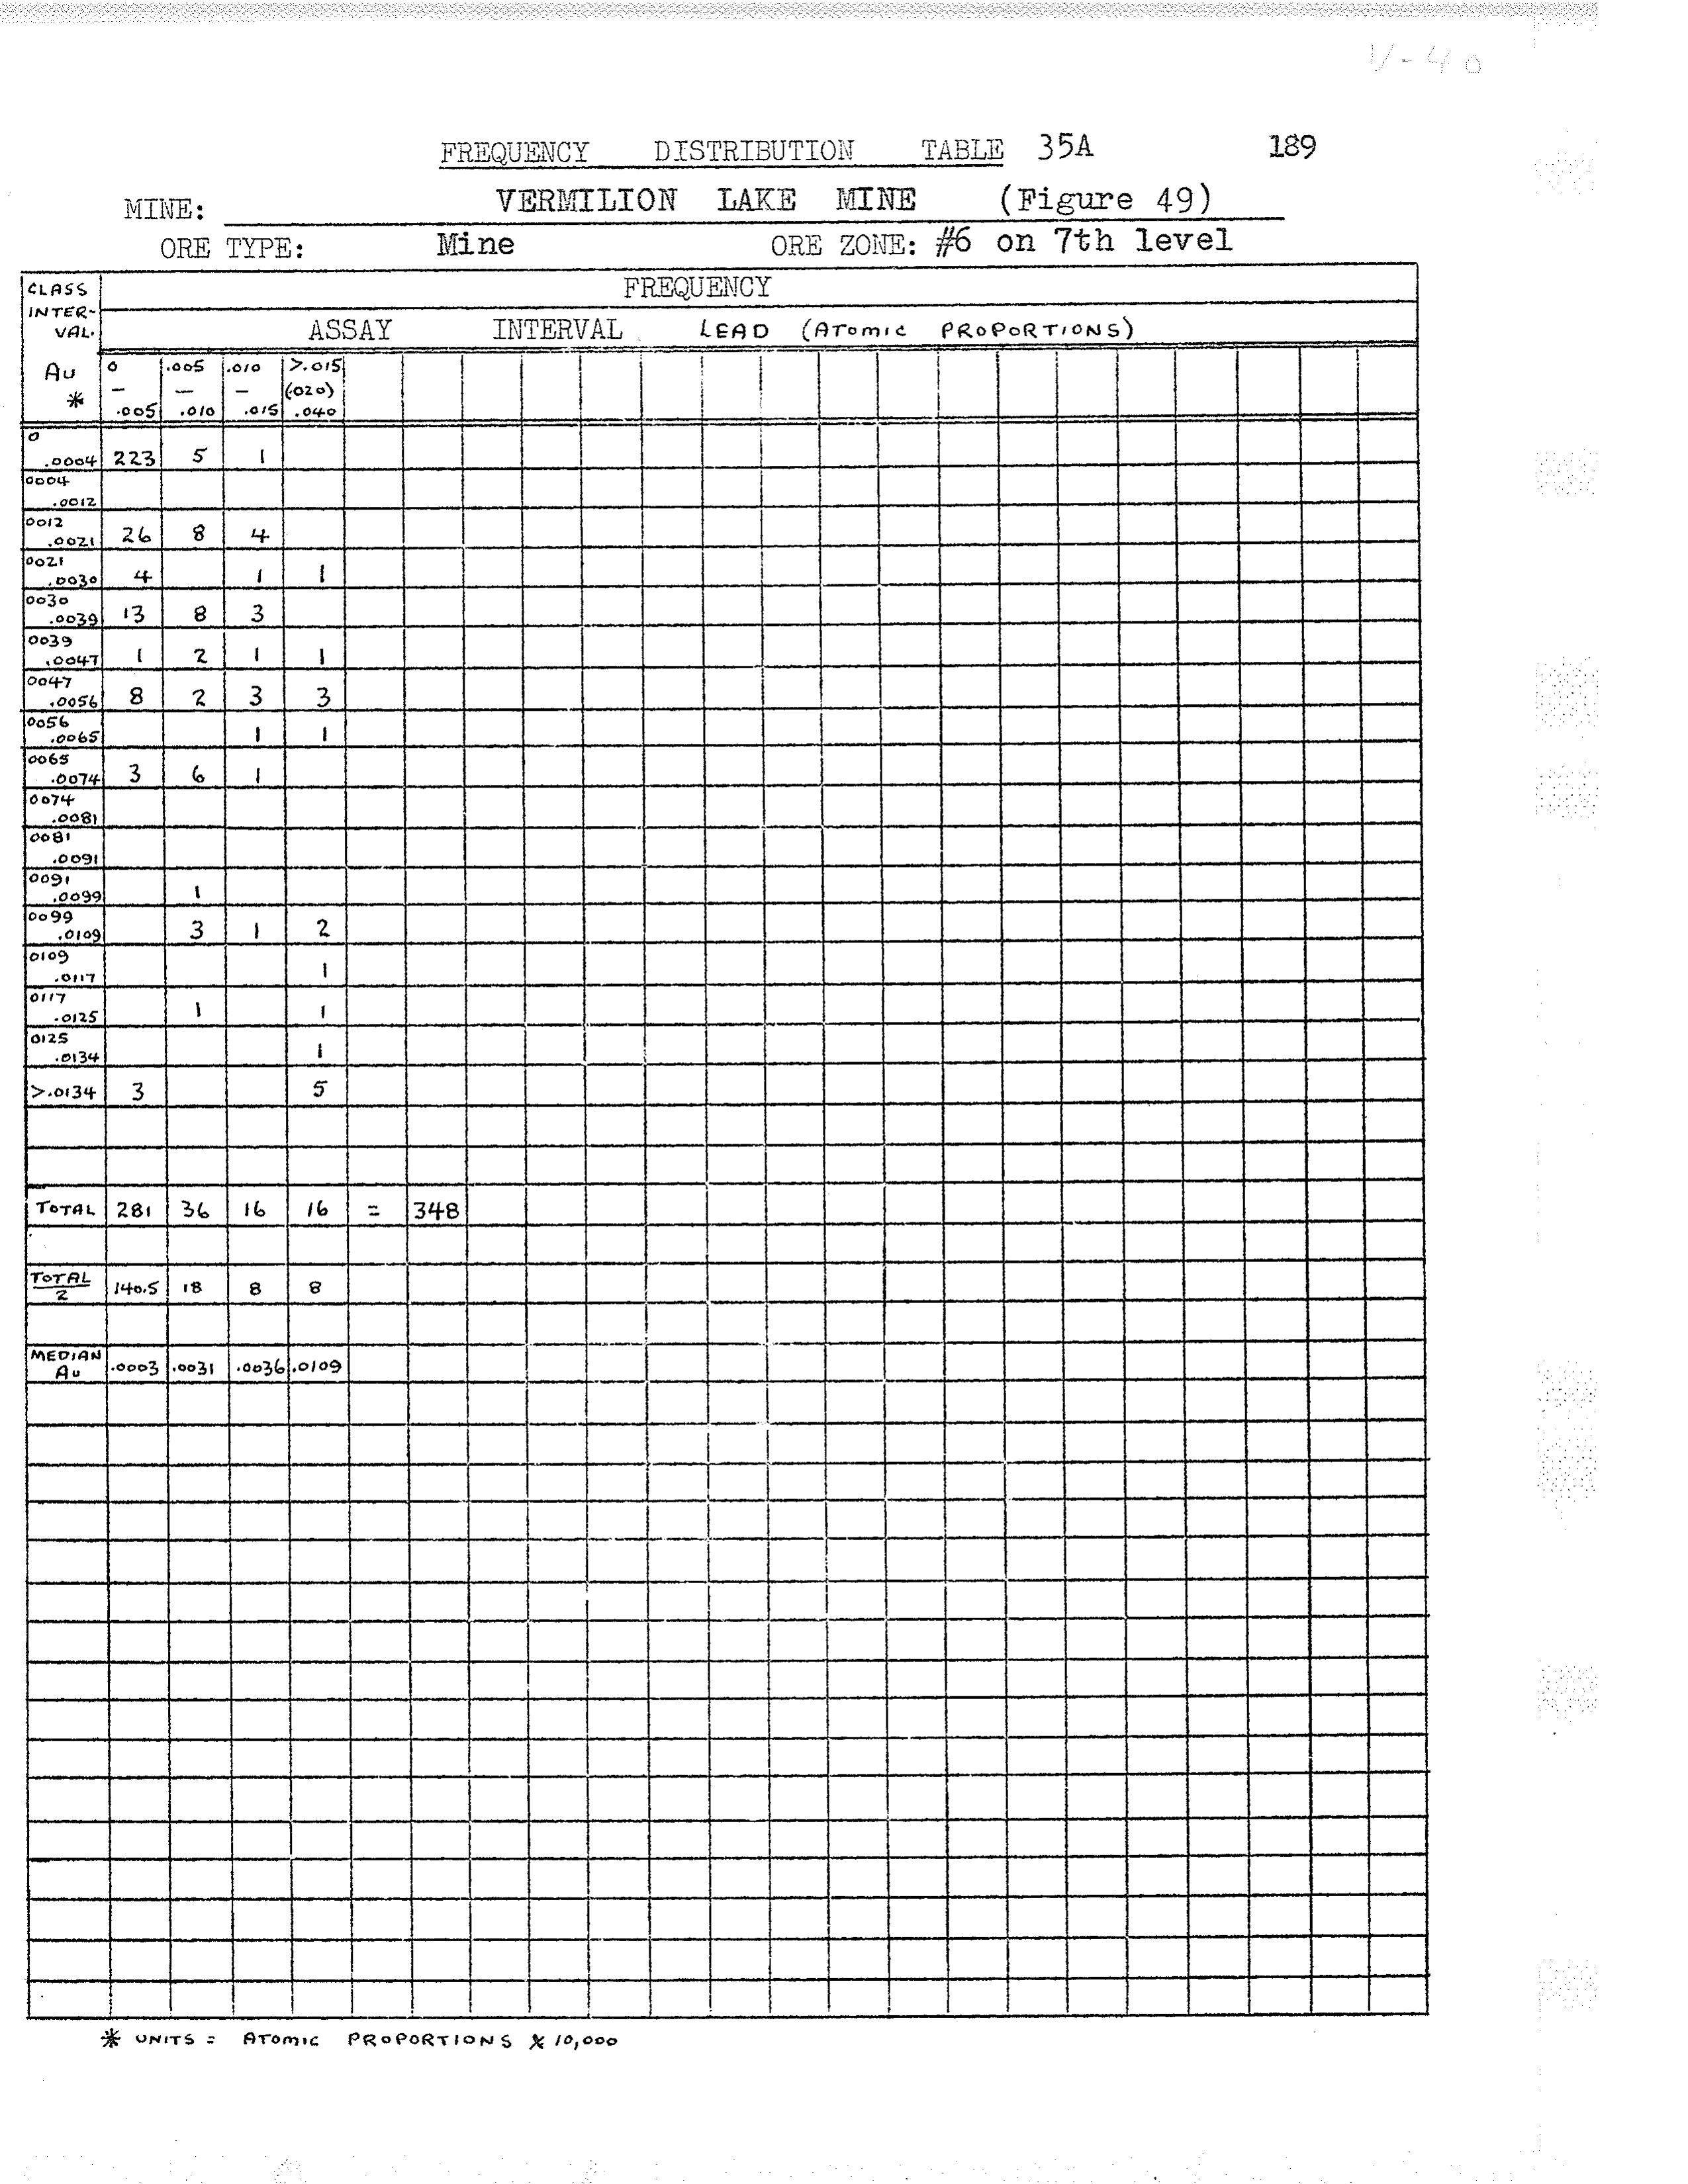 V-40
FREQUENCY DISTRIBUTION TABLE 35A 189
MINE: VERMILION LAKE MINE (Figure 49)
ORE TYPE: Mine ORE ZONE: #6 on 7th level
CLASS INTER-VAL. Au * FREQUENCY
ASSAY INTERVAL LEAD (ATOMIC PROPORTIONS)
0 – .005 .005 – .010 .010 – .015 >.015 (.020) .040
0 .0004 223 5 1
0004 .0012
0012 .0021 26 8 4
0021 .0030 4 1 1
0030 .0039 13 8 3
0039 .0047 1 2 1 1
0047 .0056 8 2 3 3
0056 .0065 1 1
0065 .0074 3 6 1
0074 .0081
0081 .0091
0091 .0099 1
0099 .0109 3 1 2
0109 .0117 1
0117 .0125 1 1
0125 .0134 1
>.0134 3 5
TOTAL 281 36 16 16 = 348
TOTAL 2 140.5 18 8 8
MEDIAN Au .0003 .0031 .0036 .0109
* UNITS = ATOMIC PROPORTIONS X 10,000